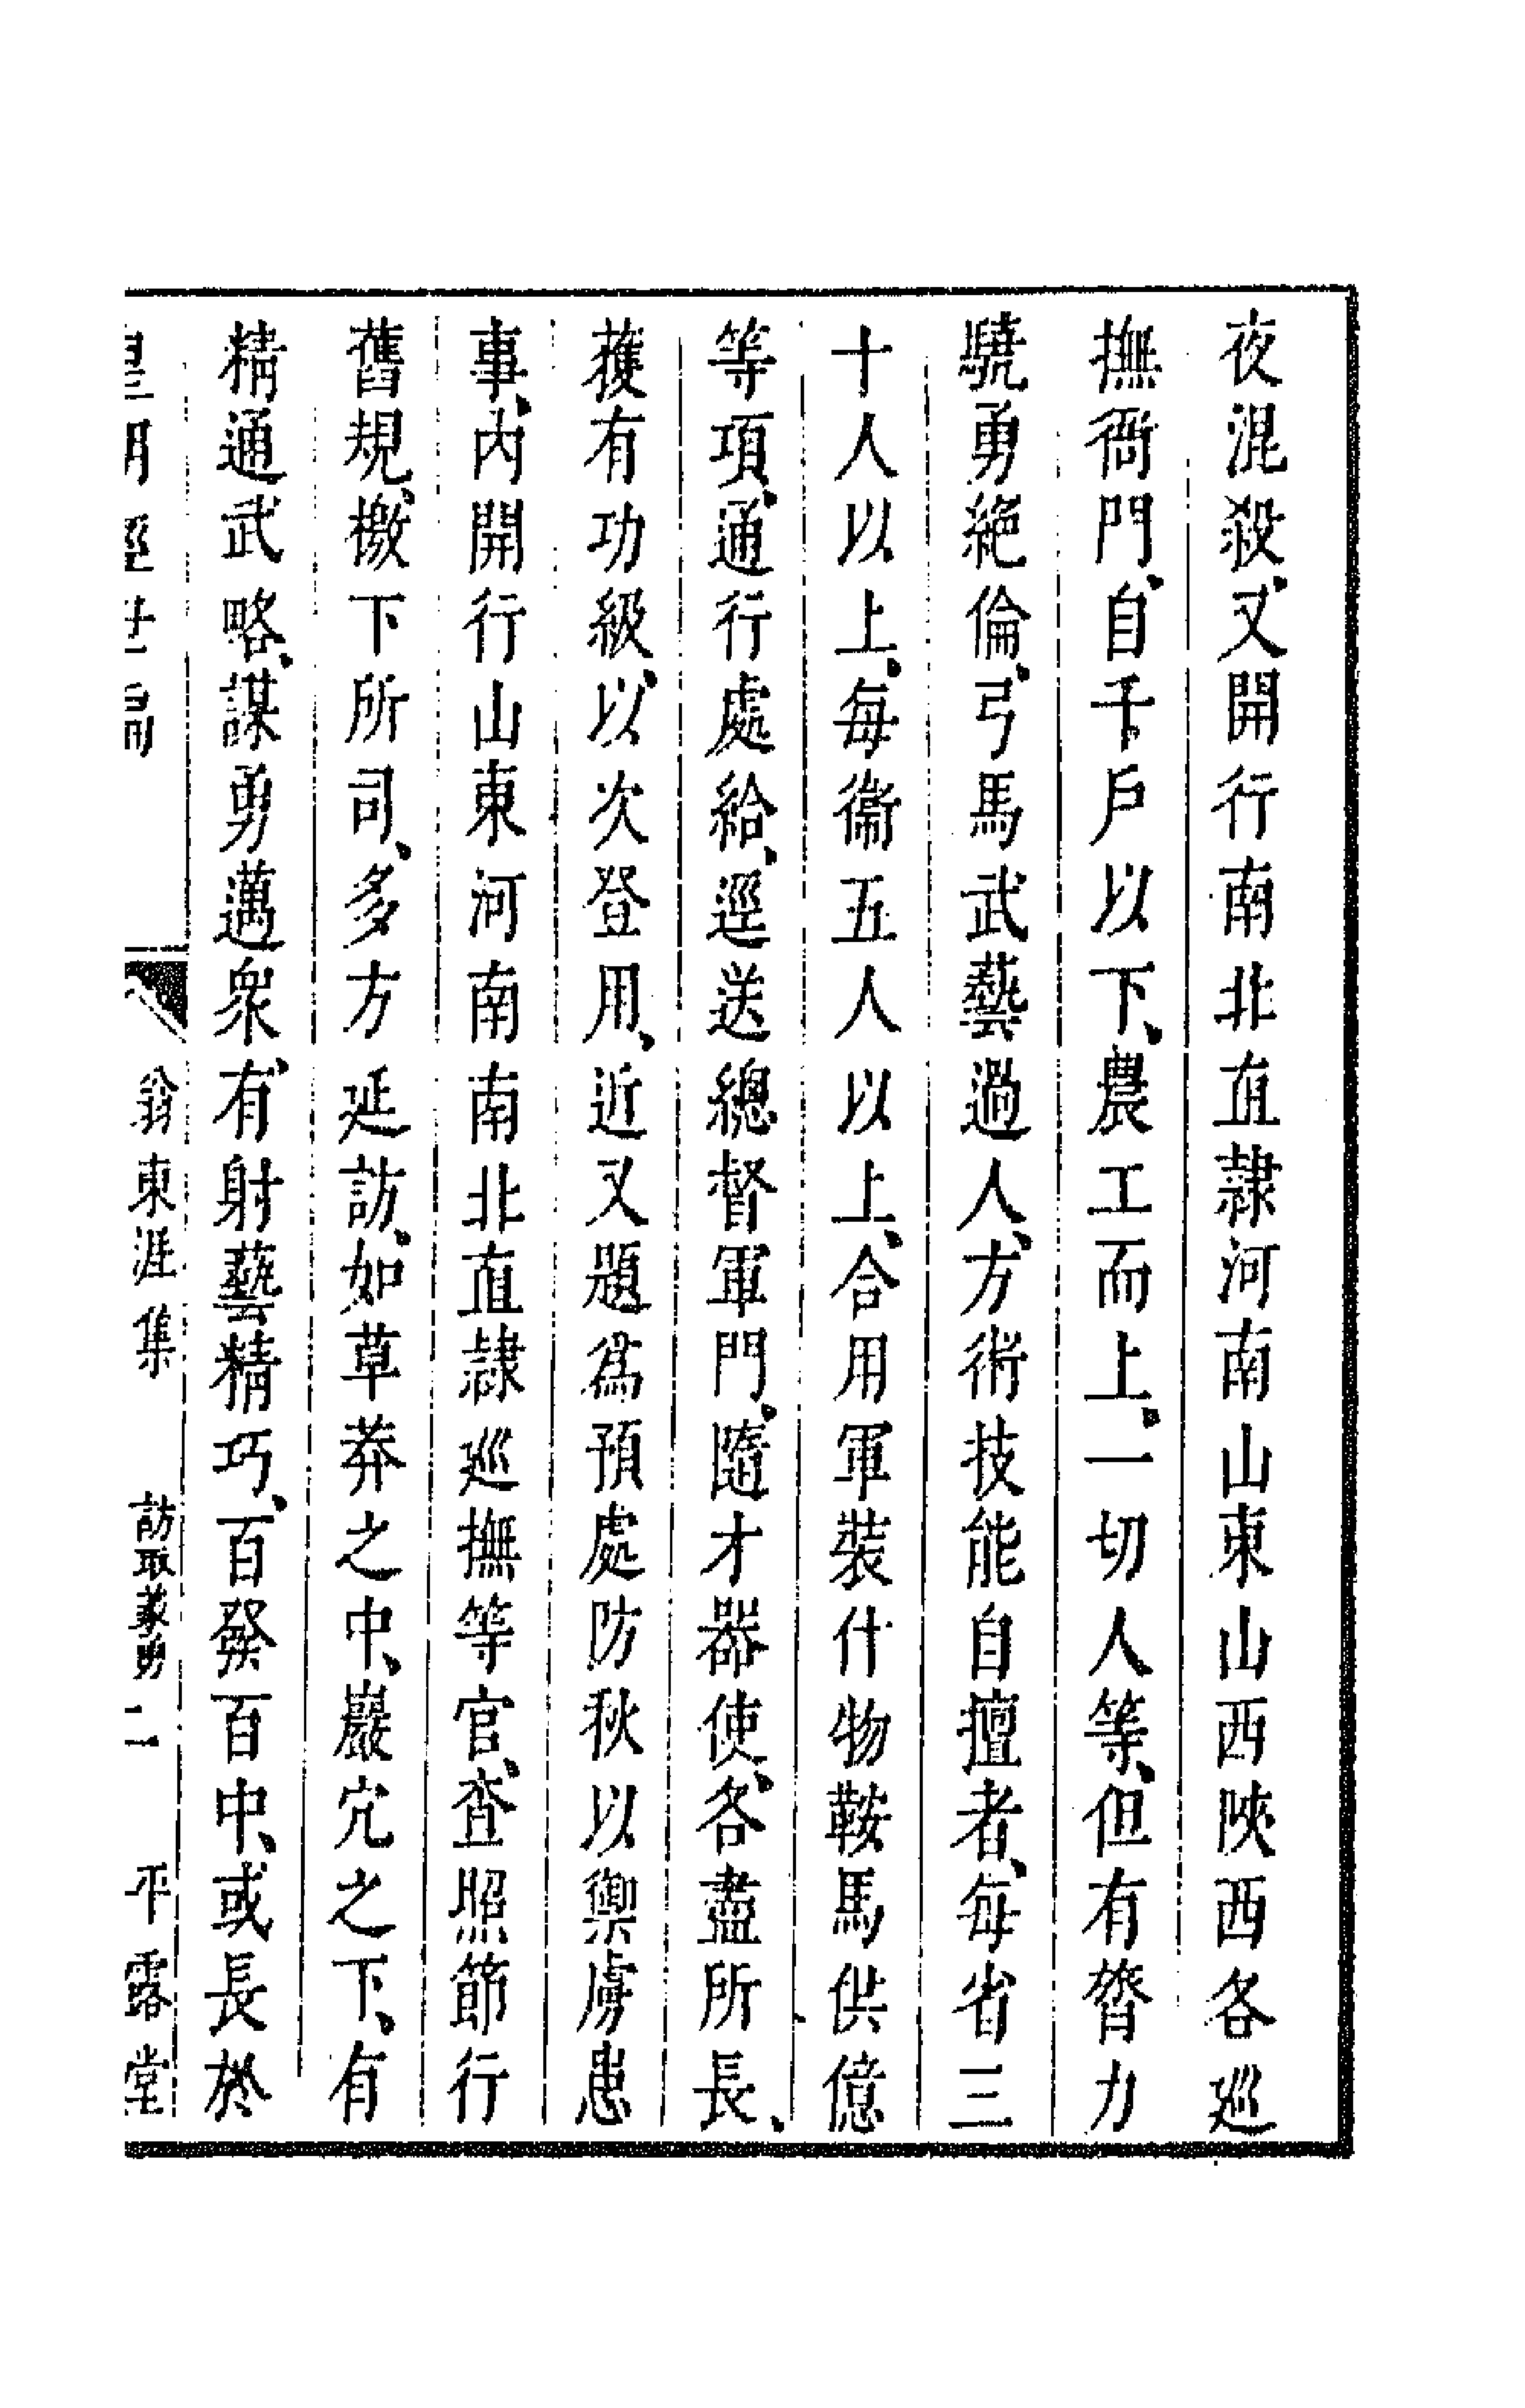 夜混殺、又開行南北直隸河南山東山西陝西各巡
撫衙門、自千戶以下、農工而上、一切人等、但有膂力
驍勇絕倫、弓馬武藝過人、方術技能自擅者、每省三
十人以上、每衞五人以上、合用軍裝什物鞍馬供億
等項、通行處給、逕送總督軍門、隨才器使、各盡所長、
獲有功級、以次登用、近又題爲預處防秋以禦虜患
事、內開行山東河南南北直隸巡撫等官、查照節行
舊規、檄下所司、多方延訪、如草莽之中、巖穴之下、有
精通武略、謀勇邁衆、有射藝精巧、百發百中、或長於
皇明經世編 翁東涯集 訪取義勇 二 平露堂